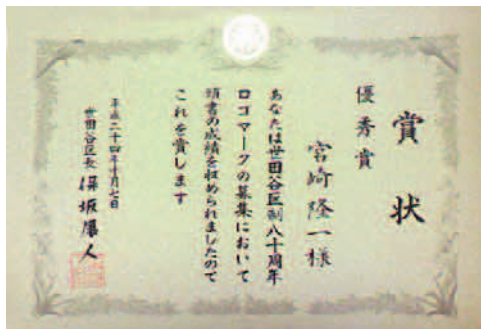 賞状
優秀賞
宮崎隆一様
あなたは世田谷区制八十周年
ロゴマークの募集において
頭書の成績を収められましたので
これを賞します
平成二十四年十月七日
世田谷区長 保坂展人